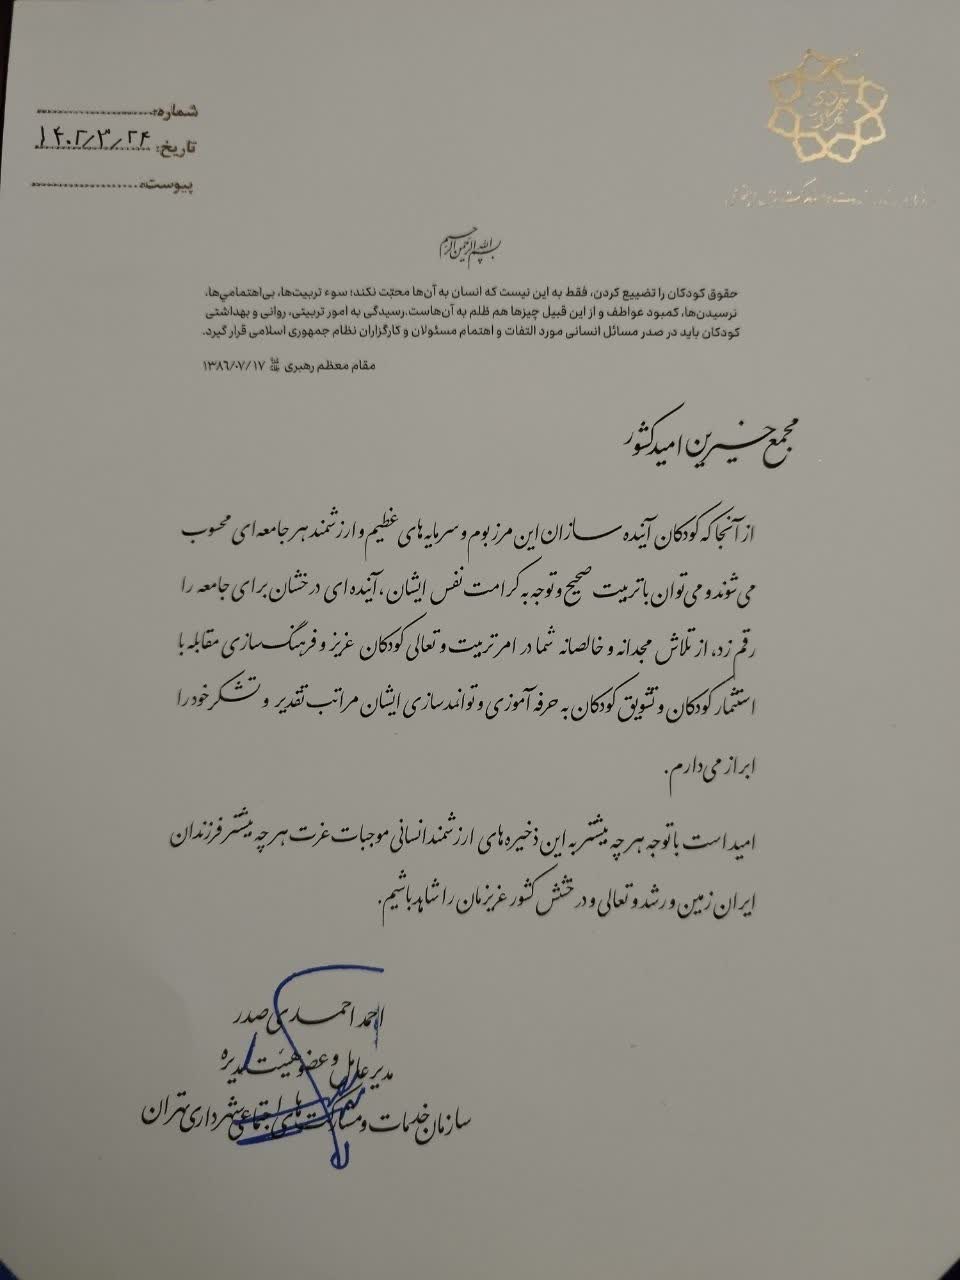 شماره:
تاریخ: ۱۴۰۲/۳/۲۴
پیوست:
شهرداری تهران
بسم الله الرحمن الرحیم
حقوق کودکان را تضییع کردن، فقط به این نیست که انسان به آن‌ها محبّت نکند؛ سوء تربیت‌ها، بی‌اهتمامی‌ها،
نرسیدن‌ها، کمبود عواطف و از این قبیل چیزها هم ظلم به آن‌هاست.رسیدگی به امور تربیتی، روانی و بهداشتی
کودکان باید در صدر مسائل انسانی مورد التفات و اهتمام مسئولان و کارگزاران نظام جمهوری اسلامی قرار گیرد.
مقام معظم رهبری ۱۳۸۶/۰۷/۱۷
مجمع خیرین امید کشور
از آنجا که کودکان آینده سازان این مرز بوم و سرمایه های عظیم و ارزشمند هر جامعه ای محسوب
می شوند و می توان با تربیت صحیح و توجه به کرامت نفس ایشان، آینده ای درخشان برای جامعه را
رقم زد، از تلاش مجدانه و خالصانه شما در امر تربیت و تعالی کودکان عزیز و فرهنگ سازی مقابله با
استثمار کودکان و تشویق کودکان به حرفه آموزی و توانمندسازی ایشان مراتب تقدیر و تشکر خود را
ابراز می دارم.
امید است با توجه هر چه بیشتر به این ذخیره های ارزشمند انسانی موجبات عزت هر چه بیشتر فرزندان
ایران زمین و رشد و تعالی و درخشش کشور عزیزمان را شاهد باشیم.
احمد احمدی صدر
مدیرعامل و عضو هیئت مدیره
سازمان خدمات و مشارکت های اجتماعی شهرداری تهران